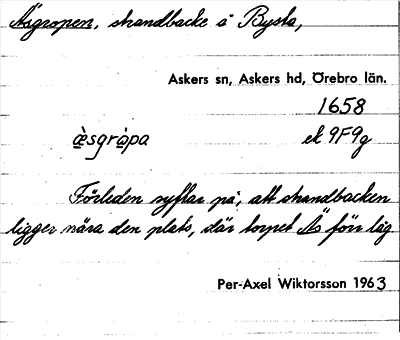 Åsgropen, strandbacke å Bysta,
Askers sn, Askers hd, Örebro län.
1658
æ̀sgrȧpa ek 9F9g
Förleden syftar på, att strandbacken
ligger nära den plats, där torpet Ås förr låg
Per-Axel Wiktorsson 1963